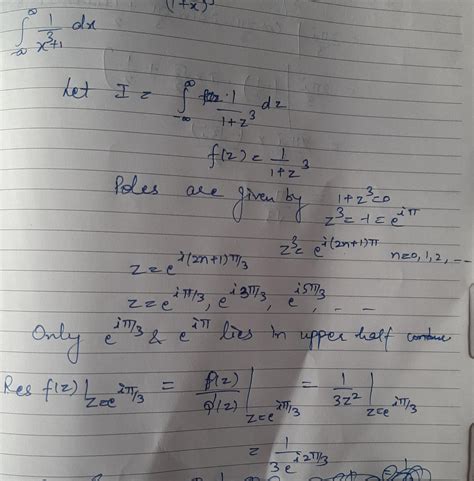 (1+x)³
∫_{-∞}^{∞} 1/(x³+1) dx
Let I = ∫_{-∞}^{∞} 1/(1+z³) dz
f(z) = 1/(1+z³)
Poles are given by 1+z³=0
z³=-1=e^{iπ}
z³=e^{i(2n+1)π} n=0,1,2,--
z=e^{i(2n+1)π/3}
z=e^{iπ/3}, e^{i3π/3}, e^{i5π/3}, - -
Only e^{iπ/3} & e^{iπ} lies in upper half
Res f(z)|_{z=e^{iπ/3}} = P(z)/Q'(z)|_{z=e^{iπ/3}} = 1/3z²|_{z=e^{iπ/3}}
= 1/3e^{i2π/3}